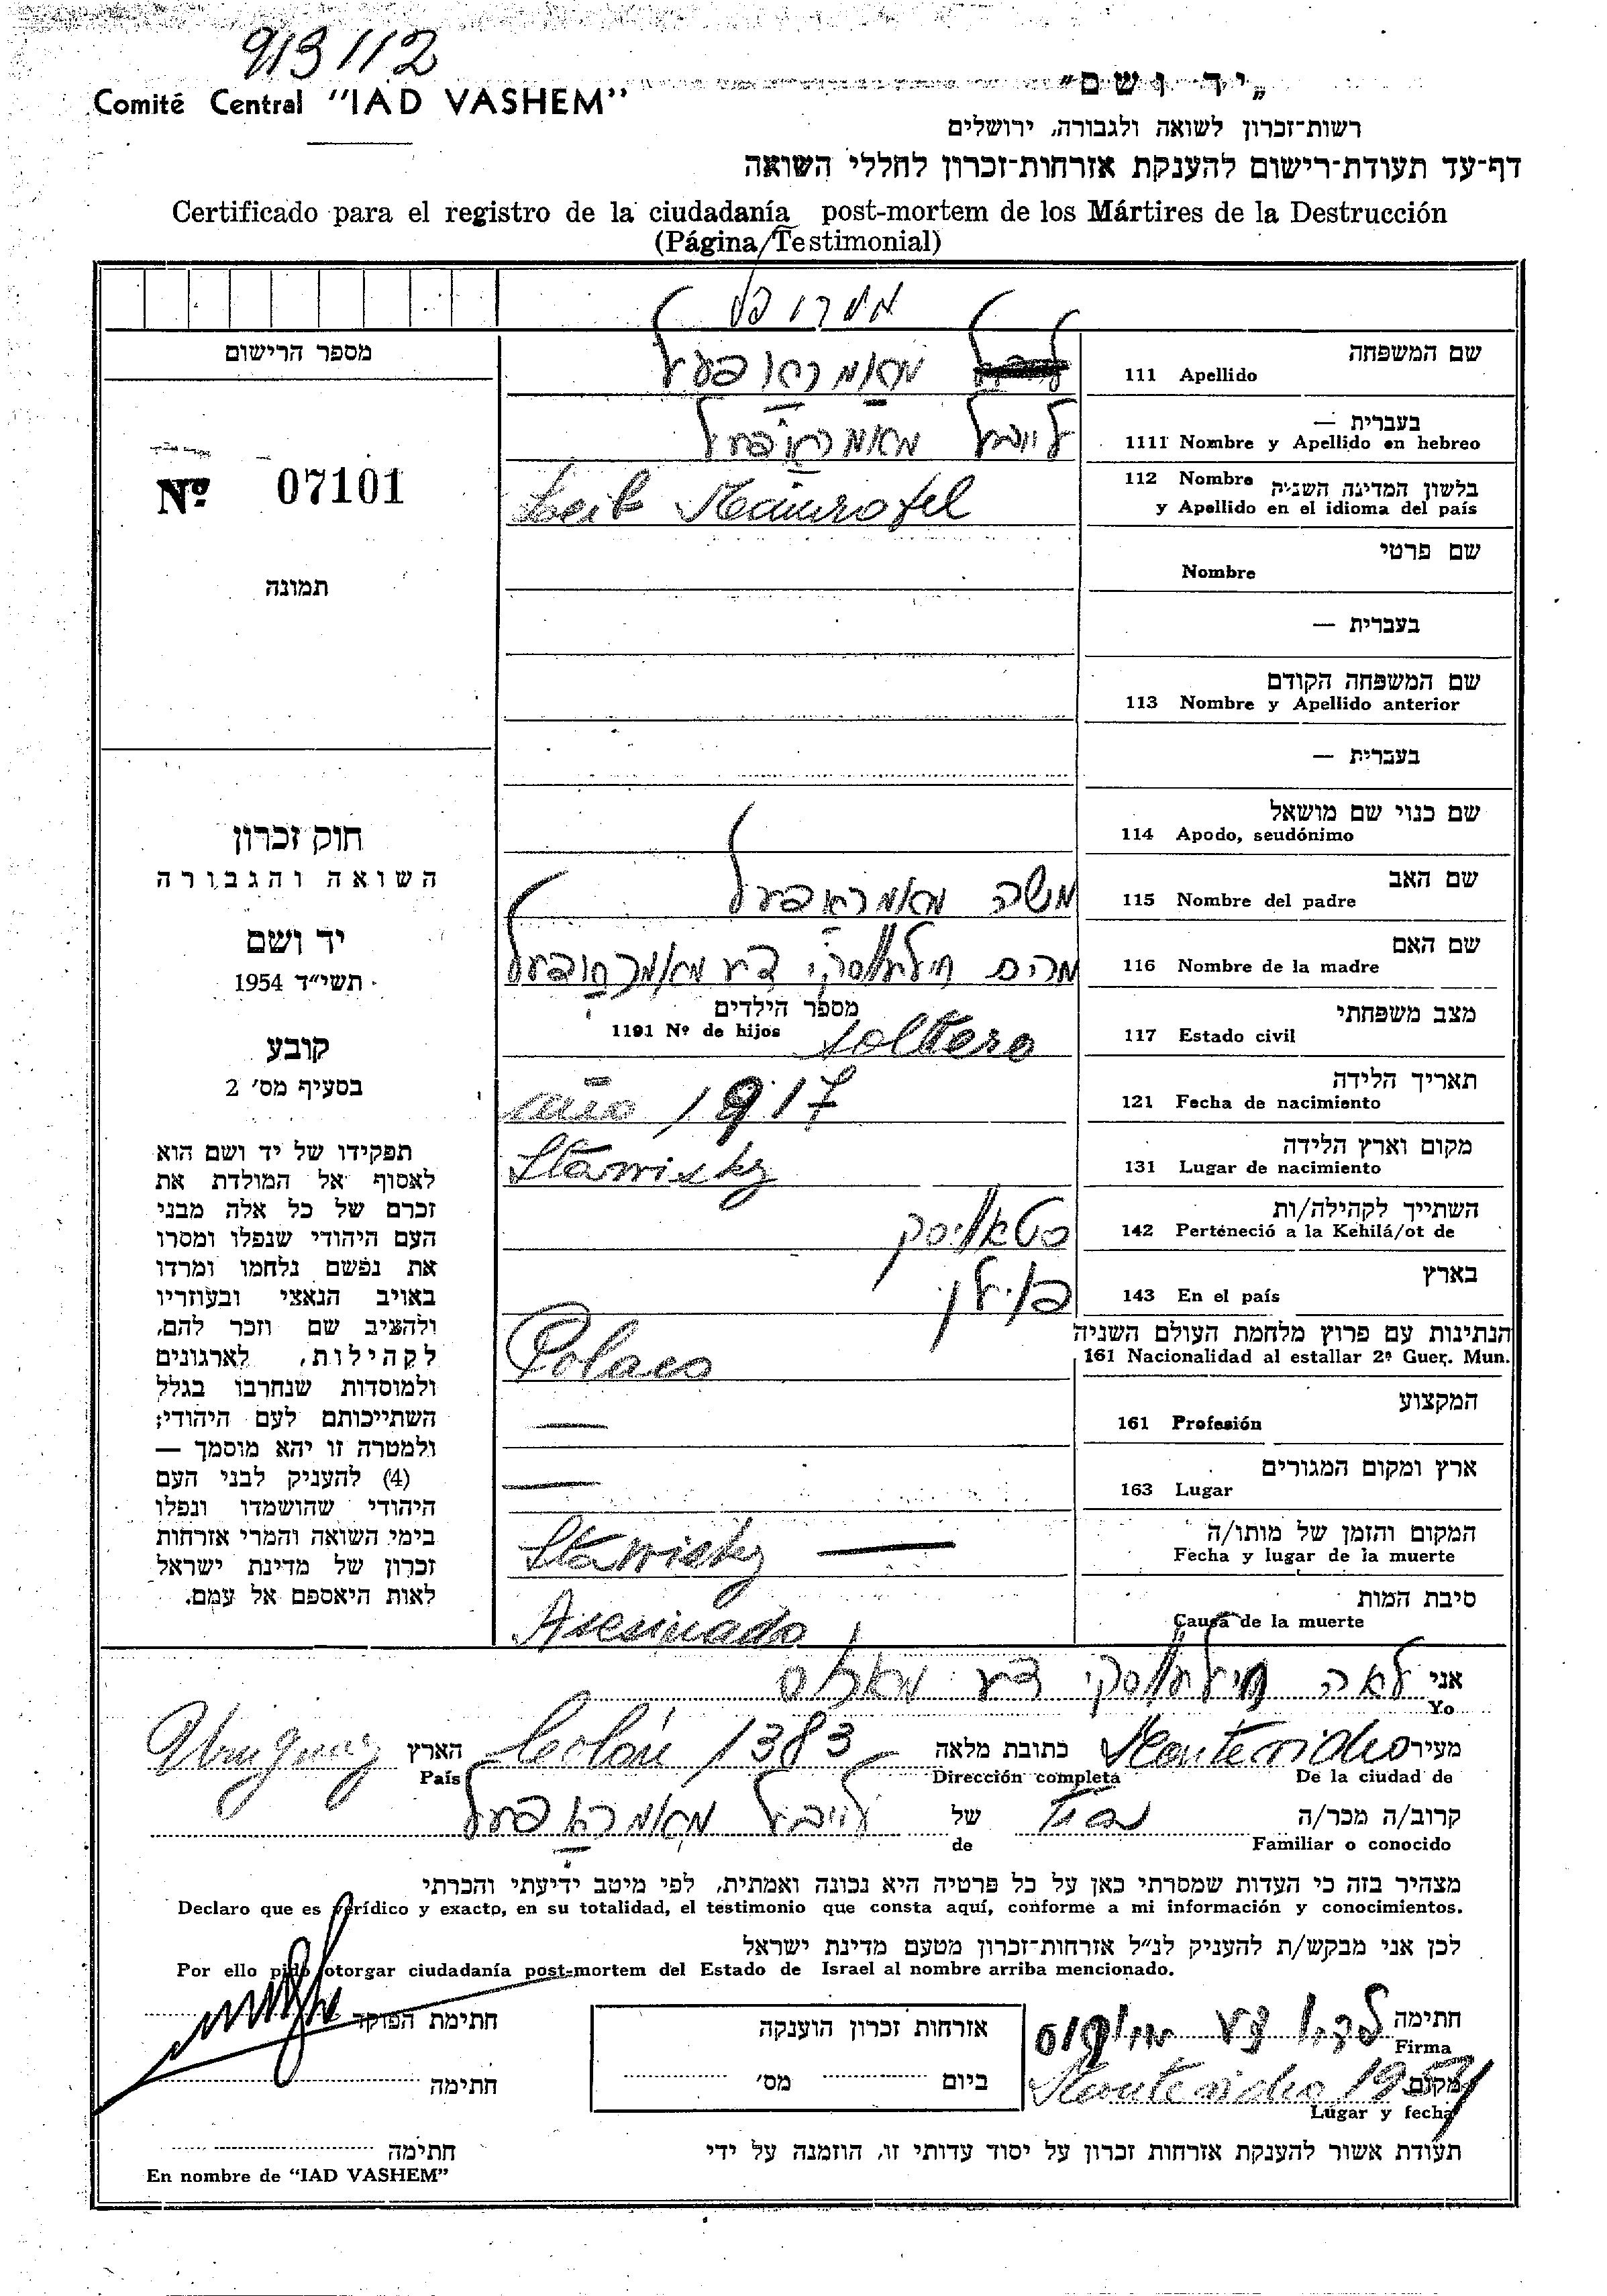 913112
Comité Central "IAD VASHEM"
„יד ושם"
רשות־זכרון לשואה ולגבורה, ירושלים
דף־עד תעודת־רישום להענקת אזרחות־זכרון לחללי השואה
Certificado para el registro de la ciudadanía post-mortem de los Mártires de la Destrucción
(Página/Testimonial)
מספר הרישום
Nº 07101
תמונה
חוק זכרון
השואה והגבורה
יד ושם
תשי״ד 1954
קובע
בסעיף מס׳ 2
תפקידו של יד ושם הוא
לאסוף אל המולדת את
זכרם של כל אלה מבני
העם היהודי שנפלו ומסרו
את נפשם נלחמו ומרדו
באויב הנאצי ובעוזריו
ולהציב שם וזכר להם,
לקהילות, לארגונים
ולמוסדות שנחרבו בגלל
השתייכותם לעם היהודי;
ולמטרה זו יהא מוסמך —
(4) להעניק לבני העם
היהודי שהושמדו ונפלו
בימי השואה והמרי אזרחות
זכרון של מדינת ישראל
לאות היאספם אל עמם.
שם המשפחה
111 Apellido מאמראפעל
בעברית —
1111 Nombre y Apellido en hebreo לייבל מאמראפעל
112 Nombre בלשון המדינה השניה
y Apellido en el idioma del país Leib Mamrofel
שם פרטי
Nombre
בעברית —
שם המשפחה הקודם
113 Nombre y Apellido anterior
בעברית —
שם כנוי שם מושאל
114 Apodo, seudónimo
שם האב
115 Nombre del padre משה מאמראפעל
שם האם
116 Nombre de la madre מרים
מצב משפחתי
117 Estado civil soltero
מספר הילדים
1191 Nº de hijos
תאריך הלידה
121 Fecha de nacimiento año 1917
מקום וארץ הלידה
131 Lugar de nacimiento Stawisky
השתייך לקהילה/ות
142 Perteneció a la Kehilá/ot de סטאוויסק
בארץ
143 En el país פוילן
הנתינות עם פרוץ מלחמת העולם השניה
161 Nacionalidad al estallar 2ª Guer. Mun. Polaco
המקצוע
161 Profesión —
ארץ ומקום המגורים
163 Lugar —
המקום והזמן של מותו/ה
Fecha y lugar de la muerte Stawisky —
סיבת המות
Causa de la muerte Asesinado
אני לאה
Yo
מעיר Montevideo כתובת מלאה Colón 1383 הארץ Uruguay
De la ciudad de Dirección completa País
קרוב/ה מכר/ה Tia של לייבל מאמראפעל
Familiar o conocido de
מצהיר בזה כי העדות שמסרתי כאן על כל פרטיה היא נכונה ואמתית, לפי מיטב ידיעתי והכרתי
Declaro que es verídico y exacto, en su totalidad, el testimonio que consta aquí, conforme a mi información y conocimientos.
לכן אני מבקש/ת להעניק לנ״ל אזרחות־זכרון מטעם מדינת ישראל
Por ello pido otorgar ciudadanía post-mortem del Estado de Israel al nombre arriba mencionado.
חתימה
Firma
אזרחות זכרון הוענקה
ביום מס׳
חתימת הפוקד
חתימה
מקום Montevideo 1954
Lugar y fecha
תעודת אשור להענקת אזרחות זכרון על יסוד עדותי זו, הוזמנה על ידי
חתימה
En nombre de "IAD VASHEM"